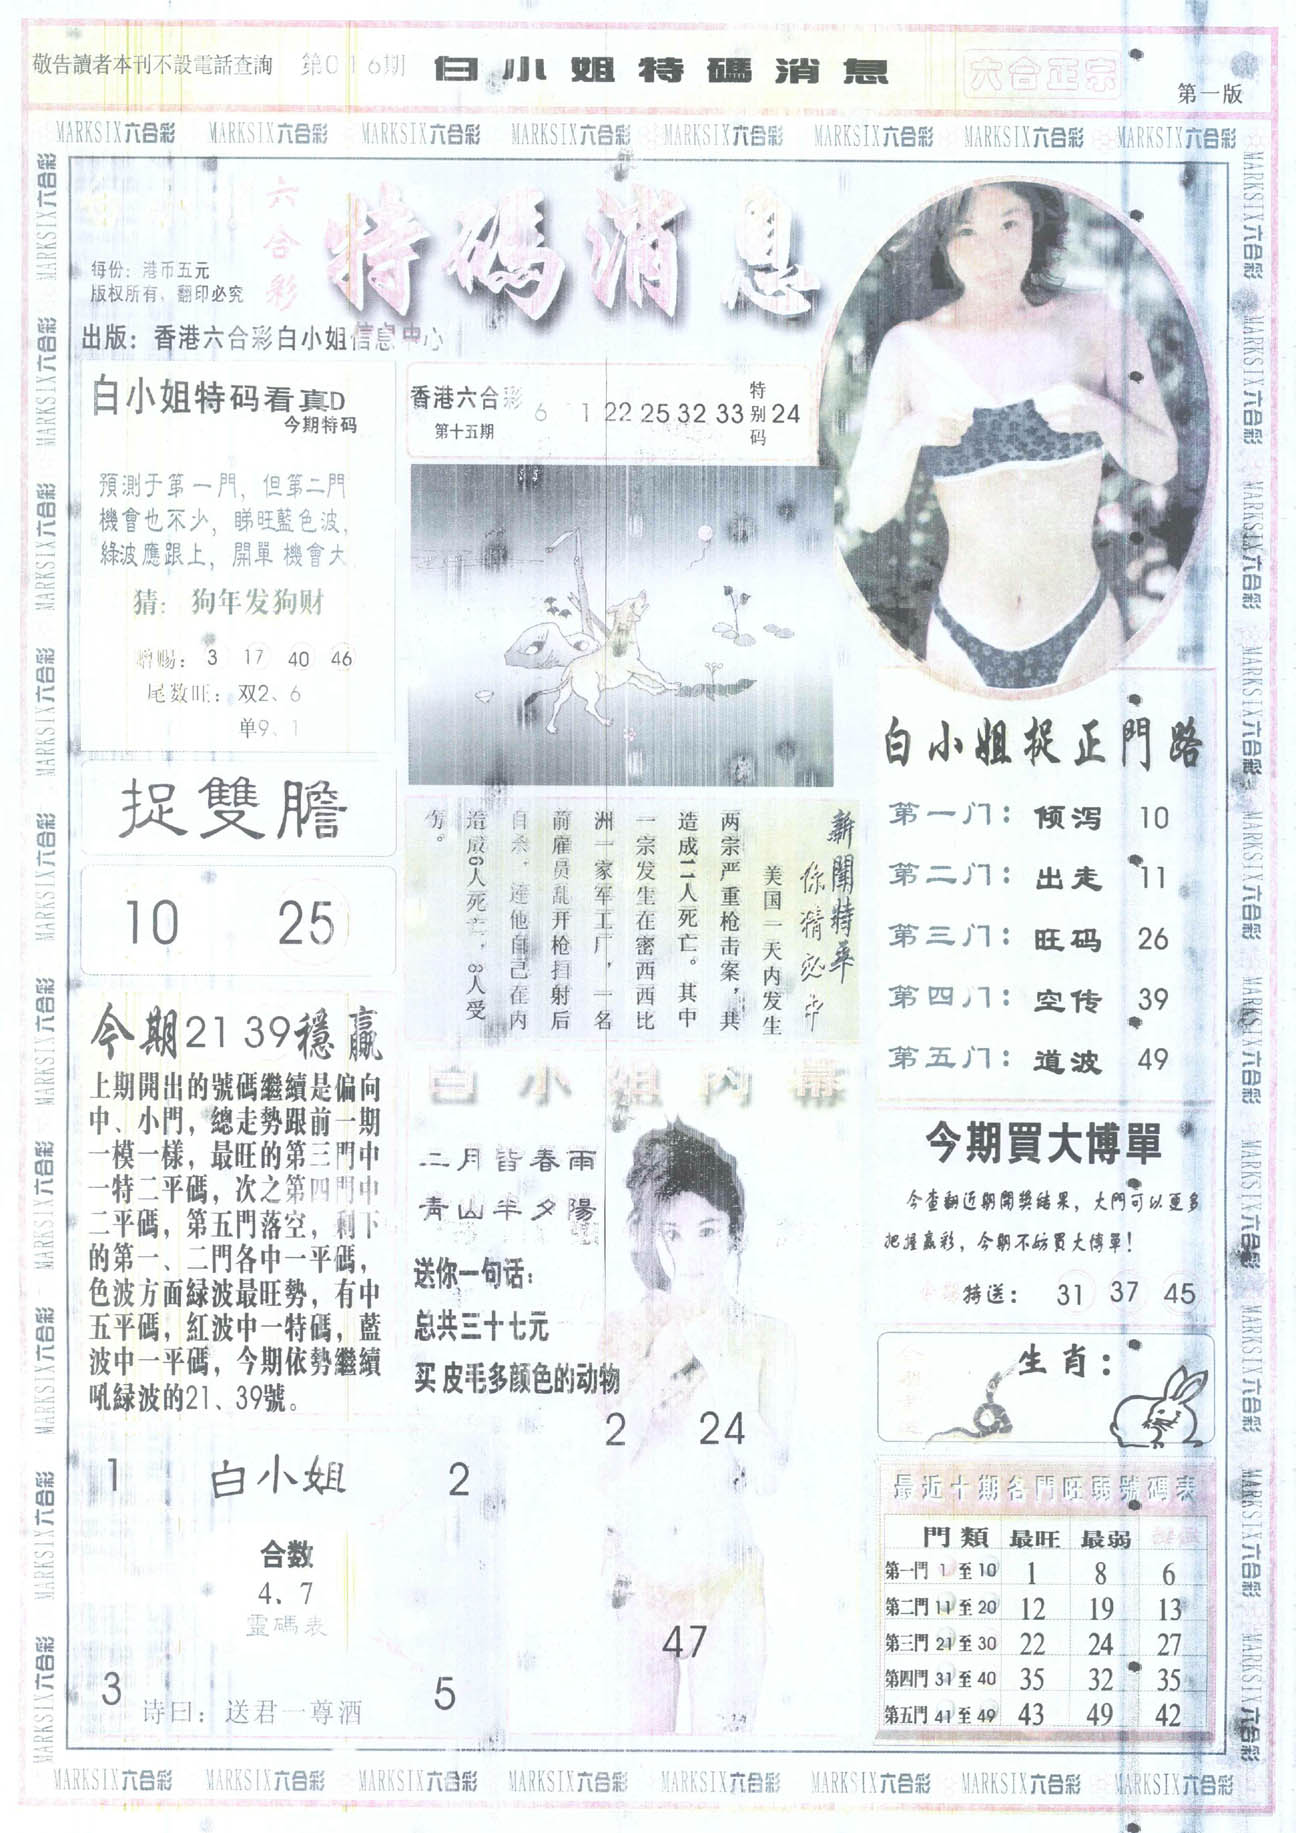 敬告讀者本刊不設電話查詢 第016期 白小姐特碼消息 六合正宗
第一版
MARKSIX六合彩 MARKSIX六合彩 MARKSIX六合彩 MARKSIX六合彩 MARKSIX六合彩 MARKSIX六合彩 MARKSIX六合彩 MARKSIX六合彩
六合彩
特碼消息
每份：港币五元
版权所有，翻印必究
出版：香港六合彩白小姐信息中心
白小姐特码看真D
今期特码
預測于第一門，但第二門
機會也不少，睇旺藍色波，
綠波應跟上，開單機會大
猜：狗年发狗财
赠赐：3 17 40 46
尾数旺：双2、6
单9、1
香港六合彩
第十五期
6 1 22 25 32 33 特别码 24
捉雙膽
10 25
今期21 39穩贏
上期開出的號碼繼續是偏向
中、小門，總走勢跟前一期
一模一樣，最旺的第三門中
一特二平碼，次之第四門中
二平碼，第五門落空，剩下
的第一、二門各中一平碼，
色波方面緑波最旺勢，有中
五平碼，紅波中一特碼，藍
波中一平碼，今期依勢繼續
吼緑波的21、39號。
新聞特華
你猜必中
美国一天内发生
两宗严重枪击案，共
造成11人死亡。其中
一宗发生在密西西比
洲一家军工厂，一名
前雇员乱开枪扫射后
自杀，连他自己在内
造成6人死亡，8人受
伤。
白小姐内幕
二月皆春雨
青山半夕陽
送你一句话：
总共三十七元
买皮毛多颜色的动物
2 24
47
白小姐捉正門路
第一门：倾泻 10
第二门：出走 11
第三门：旺码 26
第四门：空传 39
第五门：道波 49
今期買大博單
今查翻近期開獎結果，大門可以更多
把握贏彩，今期不妨買大博單！
特送：31 37 45
生肖：
最近十期各門旺弱號碼表
門類 最旺 最弱
第一門 1至10 1 8 6
第二門 11至20 12 19 13
第三門 21至30 22 24 27
第四門 31至40 35 32 35
第五門 41至49 43 49 42
1 白小姐 2
合数
4、7
靈碼表
3 5
诗曰：送君一尊酒
MARKSIX六合彩 MARKSIX六合彩 MARKSIX六合彩 MARKSIX六合彩 MARKSIX六合彩 MARKSIX六合彩 MARKSIX六合彩 MARKSIX六合彩